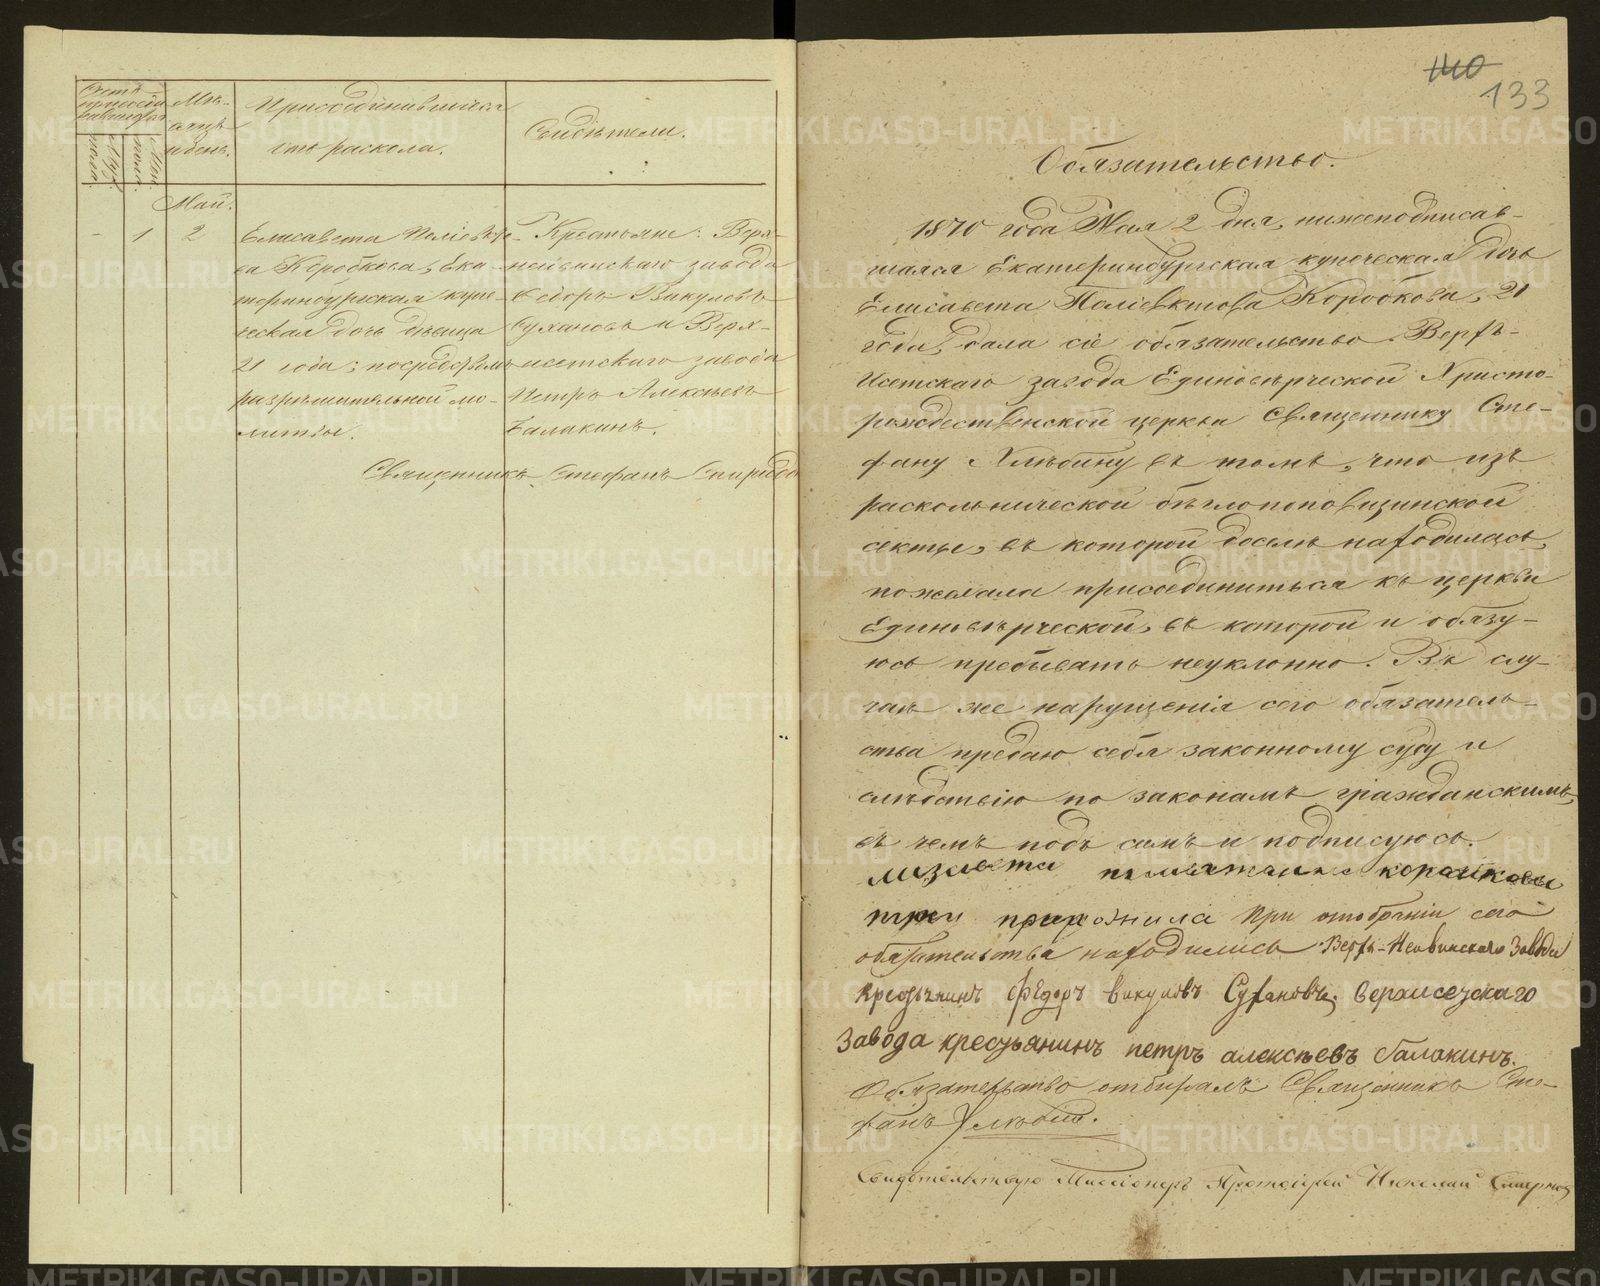 Счетъ присоеди-
нившихся
Мѣ-
сяцъ
и день.
Присоединившіеся
отъ раскола.
Свидѣтели.
мужес. пола.
жен. пола.
Май.
- 1 2
Елисавета Поліевкто-
ва Коробкова, Ека-
теринбургская купе-
ческая дочь дѣвица
21 года; посредствомъ
разрѣшительной мо-
литвы.
Крестьяне: Верх-
нейвинскаго завода
Ѳедоръ Викуловъ
Сухановъ и Верх-
исетскаго завода
Петръ Алексѣевъ
Балакинъ.
Священникъ Стефанъ
140
133
Обязательство.
1870 года Мая 2 дня, нижеподписав-
шаяся Екатеринбургская купеческая дочь
Елисавета Поліевктова Коробкова, 21
года, дала сіе обязательство Верхъ-
Исетскаго завода Единовѣрческой Христо-
рождественской церкви Священнику Сте-
фану Хлѣбину въ томъ, что изъ
раскольнической бѣглопоповщинской
секты, въ которой доселѣ находилась,
пожелала присоединиться къ церкви
Единовѣрческой, въ которой и обязу-
юсь пребывать неуклонно. Въ слу-
чаѣ же нарушенія сего обязатель-
ства предаю себя законному суду и
слѣдствію по законамъ гражданскимъ,
въ чемъ подъ симъ и подписуюсь.
лизавета коробкова
руку приложила При отобраніи сего
обязательства находились Верхъ-Неивинскаго Завода
Крестьянинъ Ѳедоръ викуловъ Сухановъ; Верхисецкаго
Завода крестьянинъ петръ алексѣевъ балакинъ.
Обязательство отбиралъ Священникъ Сте-
фанъ Хлѣбинъ.
Свидѣтельствую Миссіонеръ Протоіерей Николай Смирновъ
METRIKI.GASO-URAL.RU